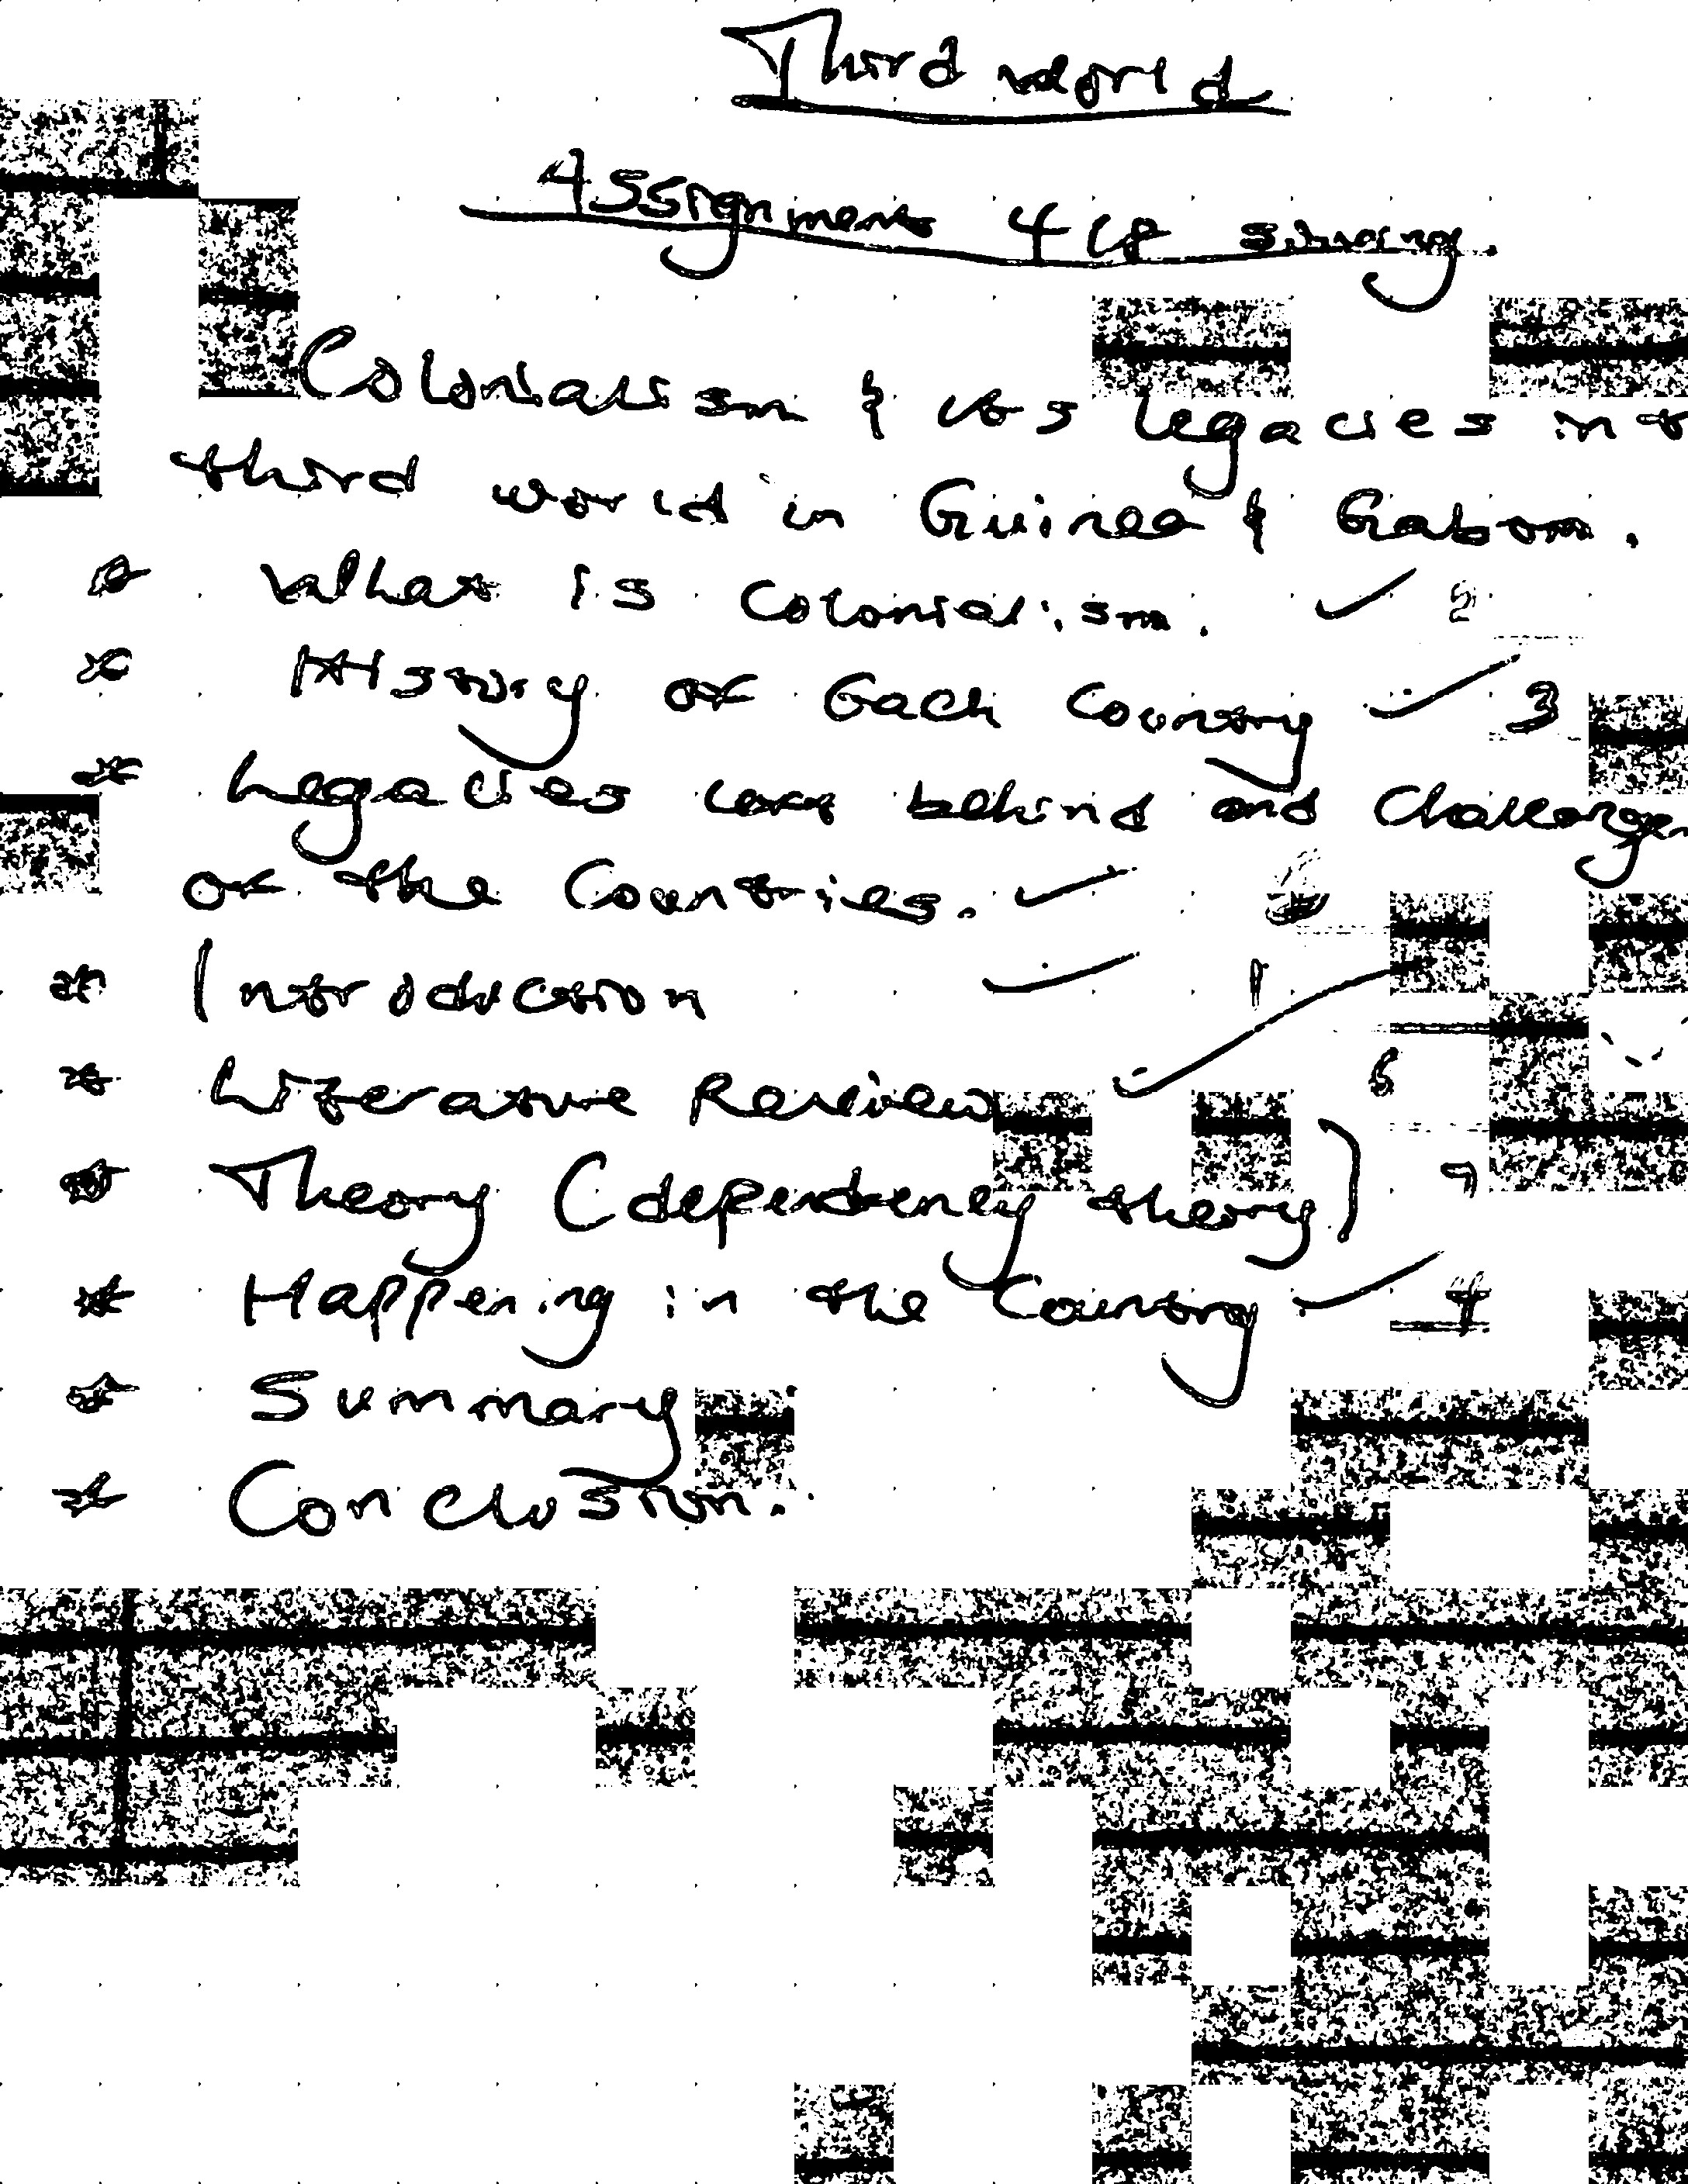 Third world
Assignment 4
Colonialism & its legacies in
third world in Guinea & Gabon.
* What is Colonialism. ✓ 2
* History of Each Country ✓ 3
* Legacies left behind and Challenges
of the Countries. ✓
* Introduction ✓ 1
* Literature Review ✓ 6
* Theory (dependency theory) 7
* Happening in the Country ✓ 4
* Summary
* Conclusion.